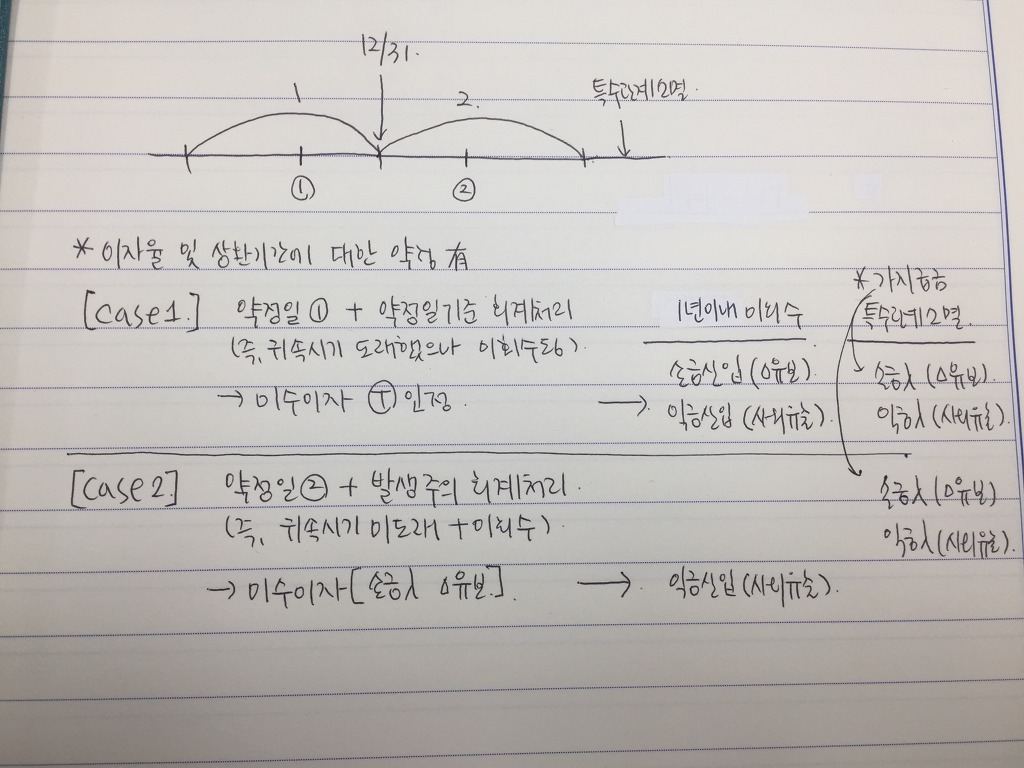 12/31.
1
2.
특수관계소멸.
①
②
* 이자율 및 상환기간에 대한 약정 有
[case1.] 약정일① + 약정일기준 회계처리
(즉, 귀속시기 도래했으나 미회수됨).
→ 미수이자 Ⓣ인정.
1년이내 미회수
→ 손금산입(△유보).
익금산입(사외유출).
* 가지급금
특수관계소멸.
손금λ(△유보).
익금λ(사외유출).
[case2.] 약정일② + 발생주의 회계처리.
(즉, 귀속시기 미도래 + 미회수).
→ 미수이자[손금λ △유보.]. → 익금산입(사외유출).
손금λ(△유보)
익금λ(사외유출).